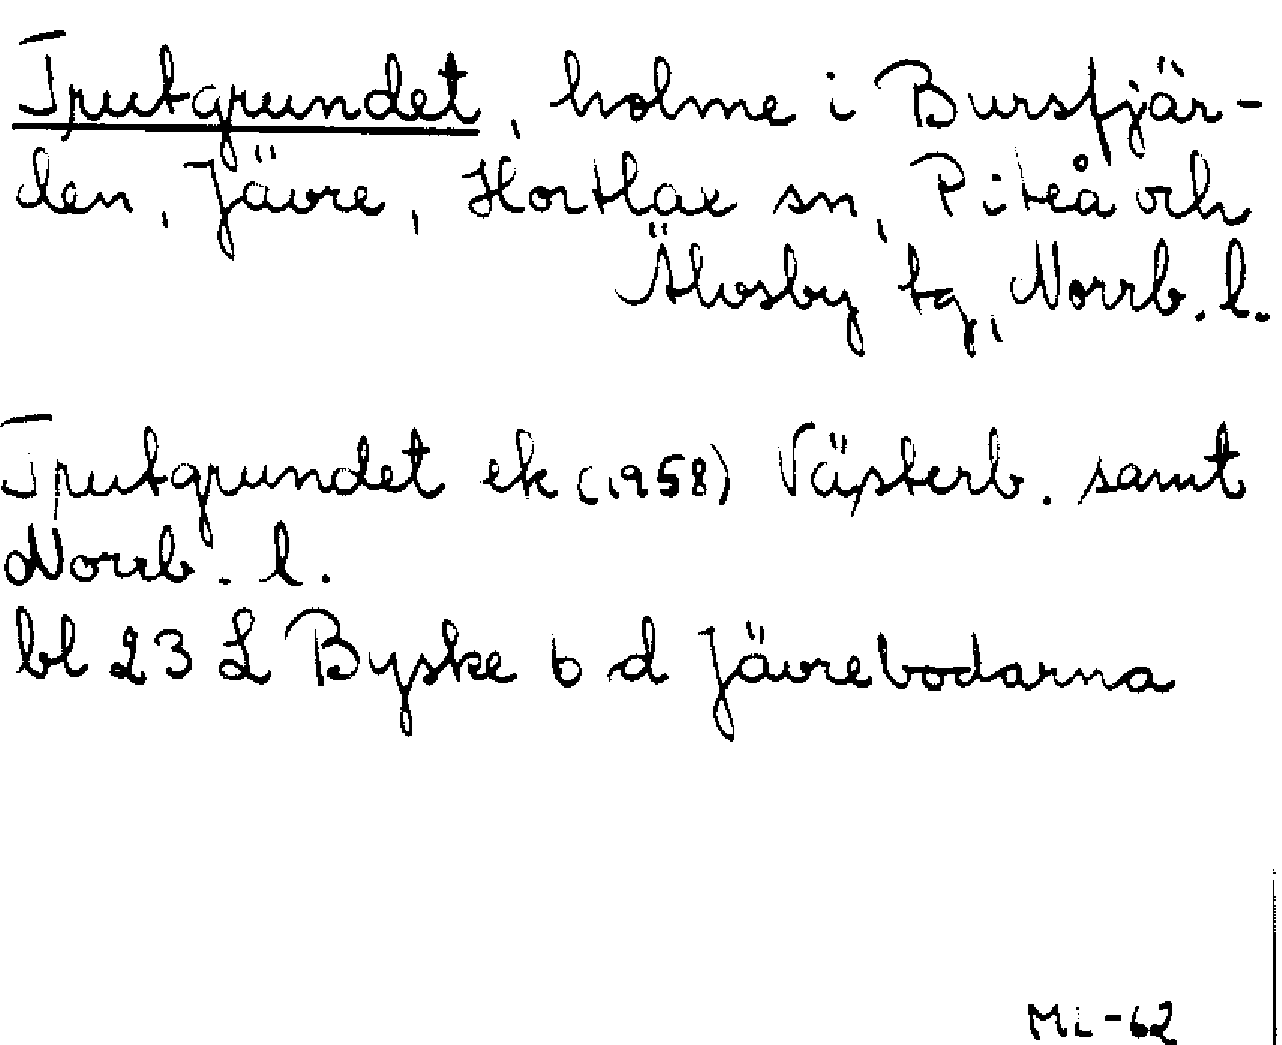 Trutgrundet, holme i Bursfjär-
den, Jävre, Hortlax sn, Piteå och
Älvsby tg, Norrb. l.
Trutgrundet ek (1958) Västerb. samt
Norrb. l.
bl 23 L Byske b d Jävrebodarna
ML-62